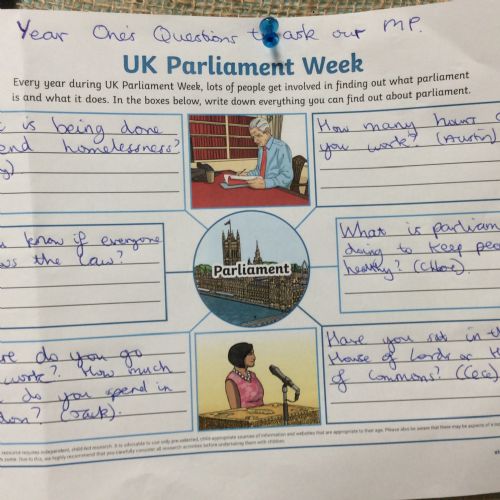 Year One's Questions to ask our MP.
UK Parliament Week
Every year during UK Parliament Week, lots of people get involved in finding out what parliament
is and what it does. In the boxes below, write down everything you can find out about parliament.
is being done
end homelessness?
How many hours
you work? (Austin)
know if everyone
the law?
Parliament
What is parliam
doing to keep peo
healthy? (Chloe).
do you go
work? How much
do you spend in
don? (Jack).
Have you sat in th
House of Lords or
of Commons? (Cece)
resource requires independent, child-led research. It is advisable to use only pre-selected, child-appropriate sources of information and websites that are appropriate to their age. Please also be aware that there may be aspects of
some. Due to this, we highly recommend that you carefully consider all research activities before undertaking them with children.